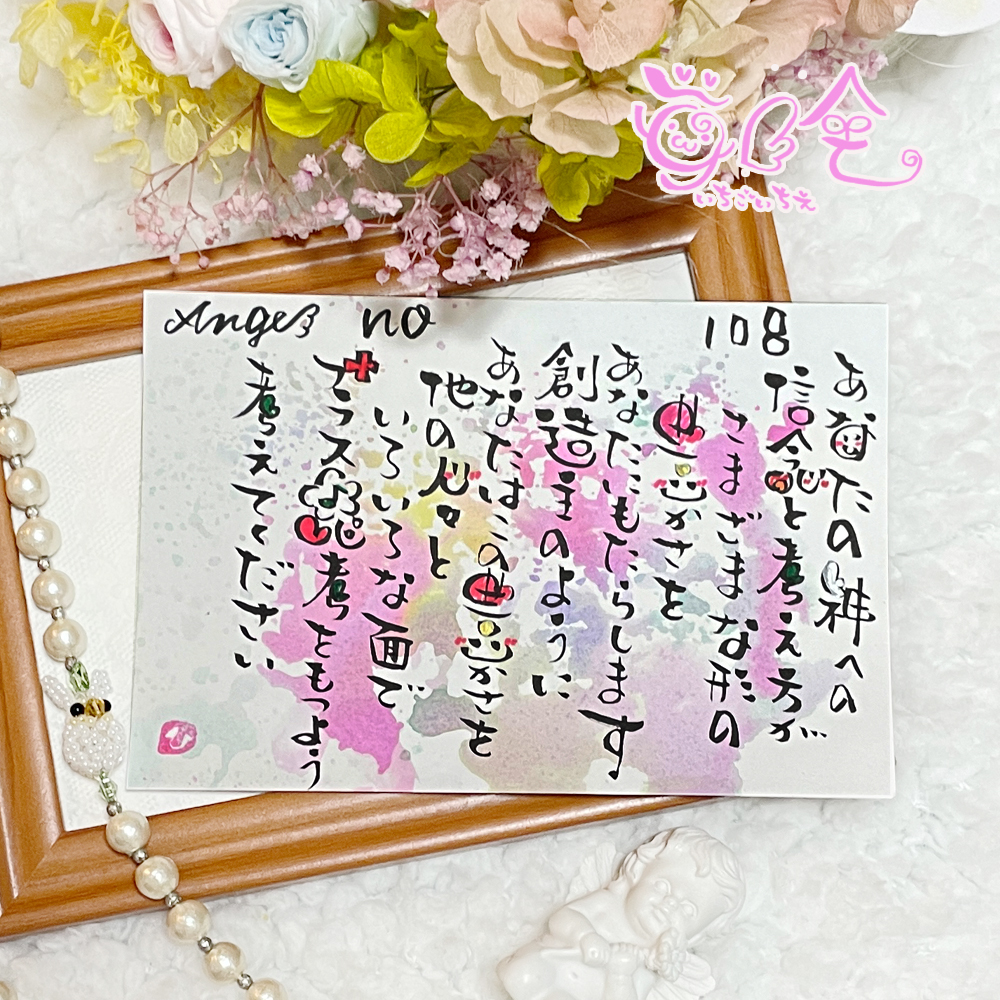 Angel no 108
あなたの神への
信念と考え方が
さまざまな形の
豊かさを
あなたにもたらします
創造主のように
あなたはこの豊かさを
他の人々と
いろいろな面で
プラス思考をもつよう
考えてください
いちごいちえ